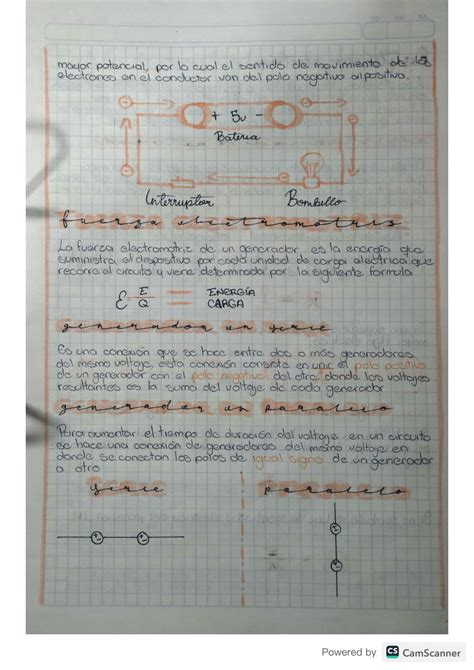 mayor potencial, por lo cual el sentido de movimiento de los
electrones en el conductor van del polo negativo al positivo.
+ 5v -
Bateria
Interruptor
Bombillo
fuerza electromotris
La fuerza electromotriz de un generador es la energía que
suministra el dispositivo por cada unidad de carga eléctrica que
recorre al circuito y viene determinada por la siguiente formula
ε = E/Q = ENERGÍA
CARGA
generador en serie
Es una conexión que se hace entre dos o más generadores
del mismo voltaje, esta conexión consiste en unir el polo positivo
de un generador con el polo negativo del otro, donde los voltajes
resultantes es la suma del voltaje de cada generador
generador en paralelo
Para aumentar el tiempo de duración del voltaje en un circuito
se hace una conexión de generadores del mismo voltaje en
donde se conectan los polos de igual signo de un generador
a otro
serie
paralelo
Powered by CS CamScanner